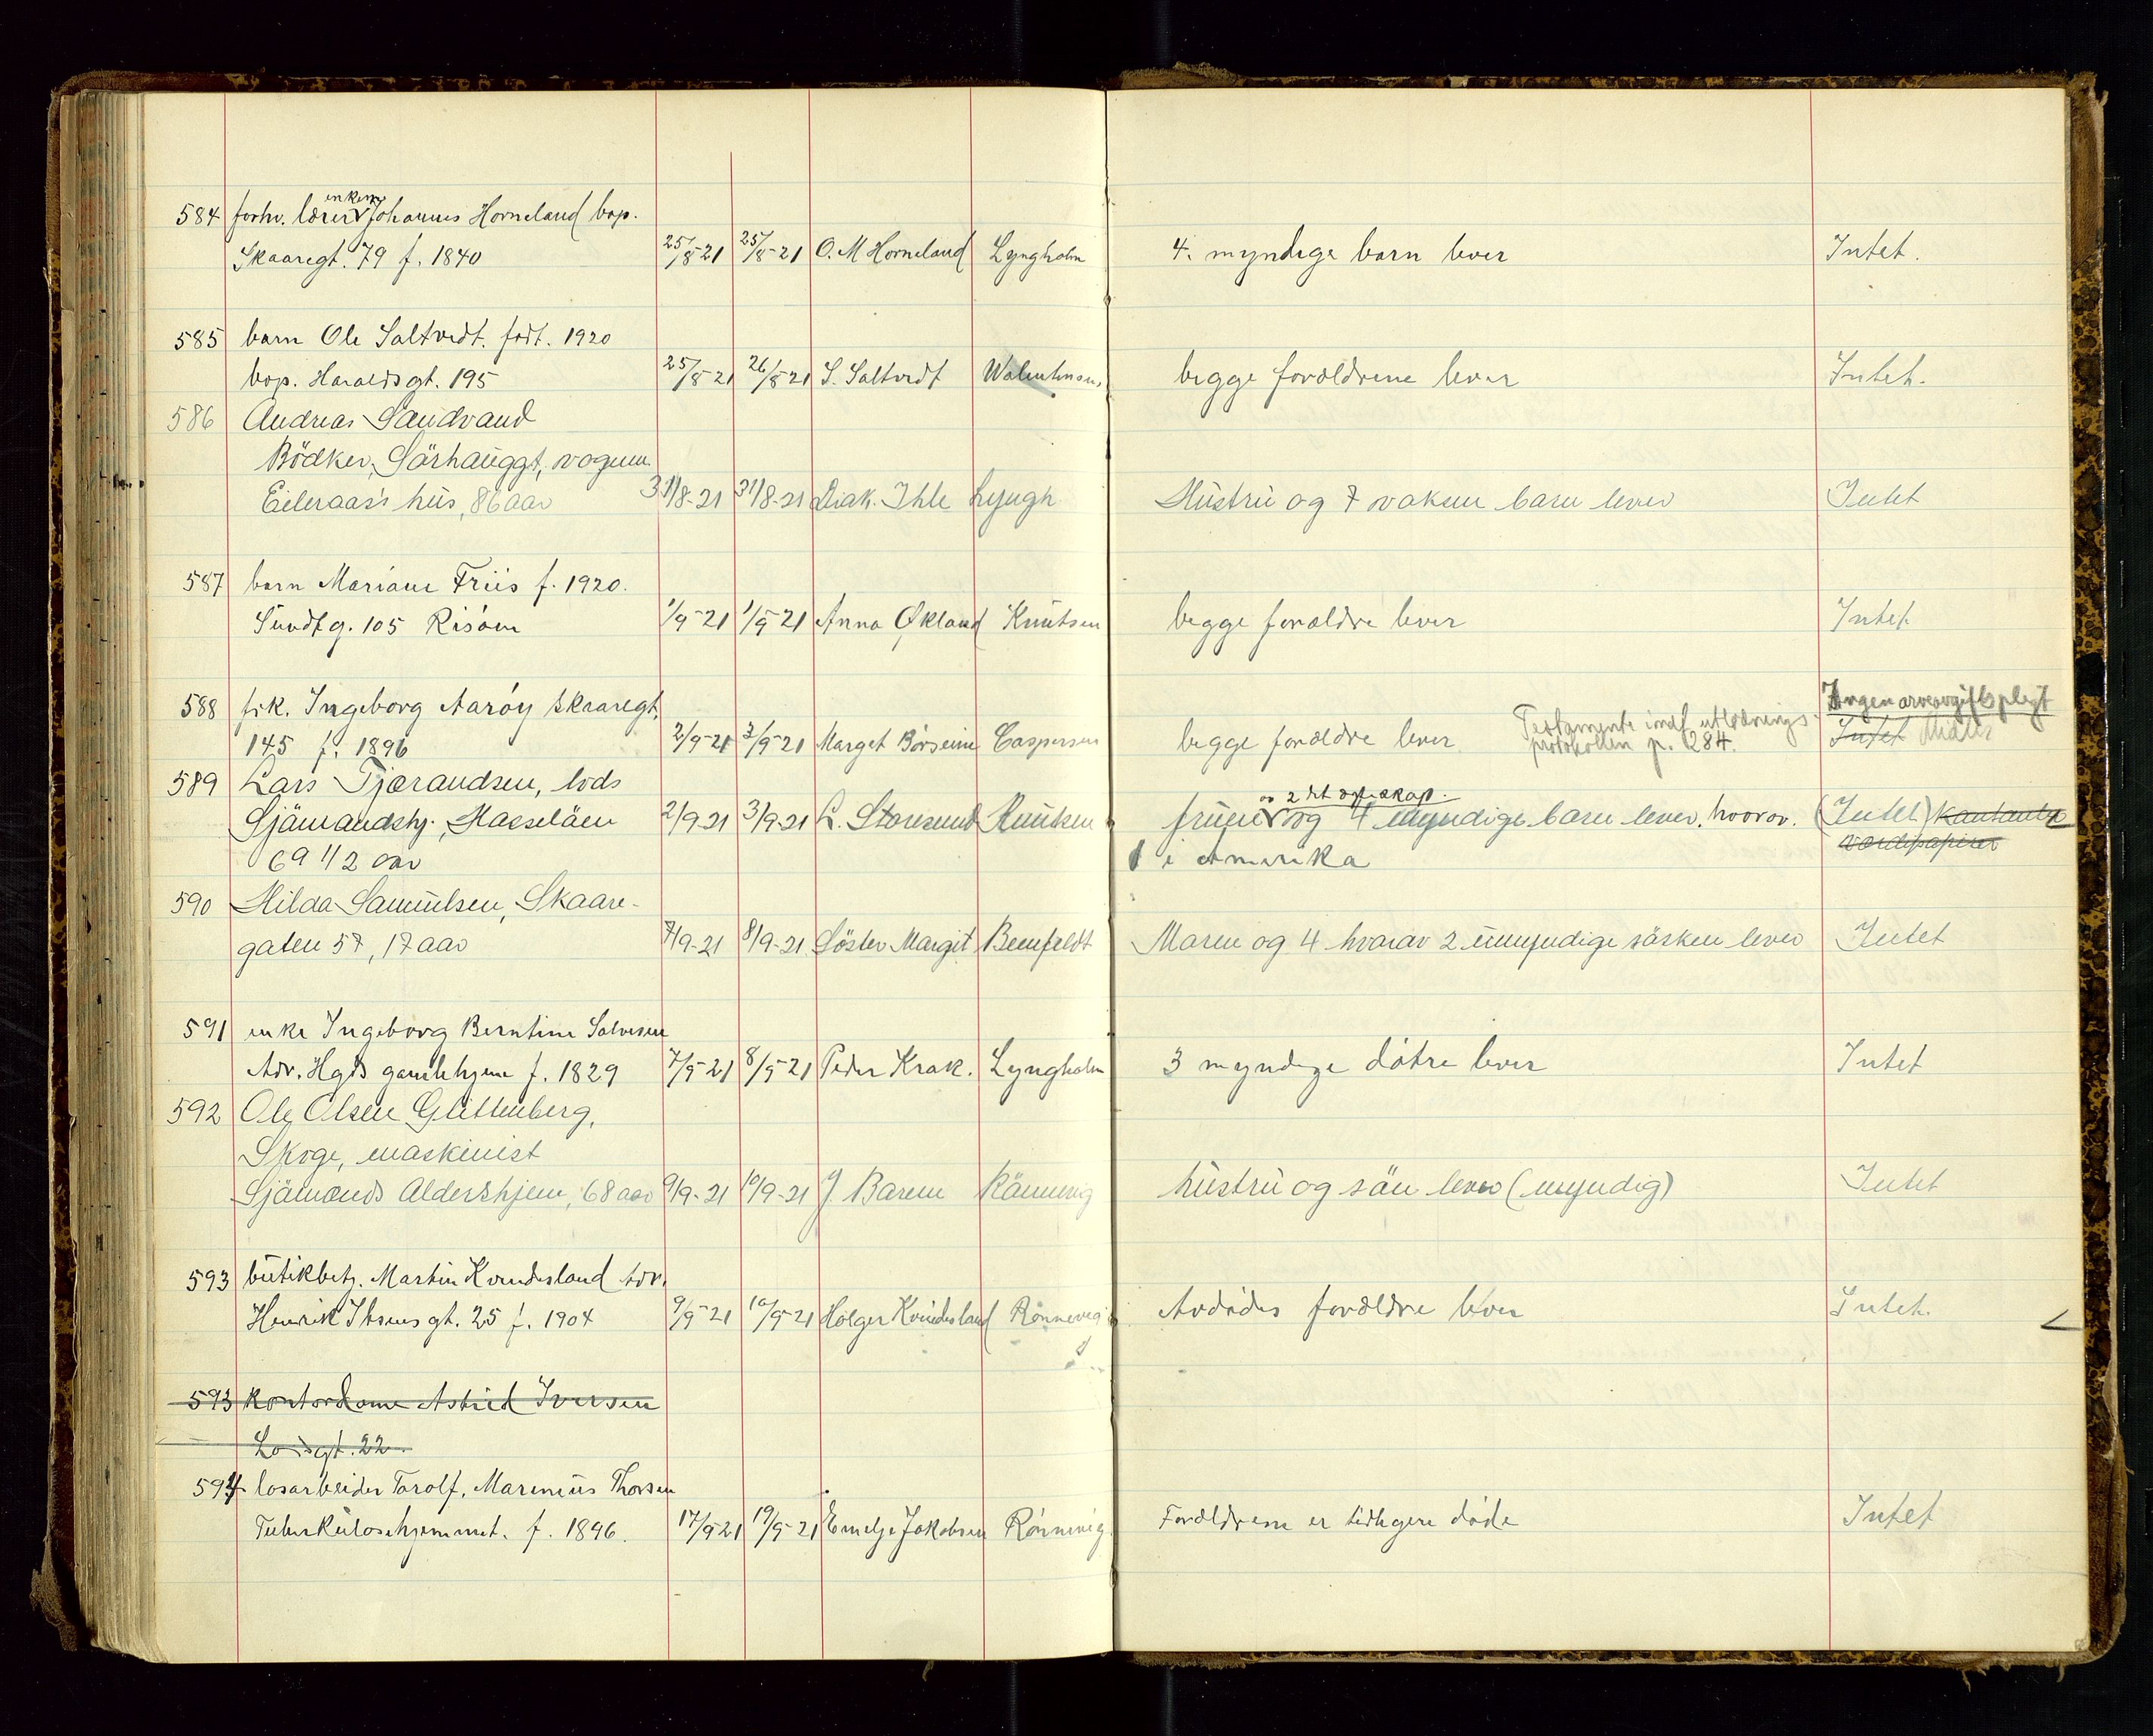 584 forhv. lærer enken Johannes Horneland bop.
Skaaregt. 79 f. 1840 25/8-21 25/8-21 O. M Horneland Lyngholm 4. myndige barn lever Intet.
585 barn Ole Saltvedt. født. 1920
bop. Haraldsgt. 195 25/8-21 26/8-21 S. Saltvedt begge forældrene lever Intet.
586 Andreas Sandvand
Bödker, Sörhauggt,
Eileraas's hus, 86 aar 31/8-21 31/8-21 Diak. Ihle Lyngh Hustru og 7 voksne barn lever Intet
587 barn Mariane Friis f. 1920.
Sundtg. 105 Risöen 1/9-21 1/9-21 Anna Økland Knutsen begge forældre lever Intet
588 frk. Ingeborg Aarøy Skaaregt. Ingen arveavgiftsplegt
145 f. 1896 2/9-21 2/9-21 Marget Börseim Caspersen begge forældre lever Testamente indf utlodnings- protokollen p. 284. Intet
589 Lars Tjærandsen, lods
Sjömandshj. Hasselöen 2/9-21 3/9-21 L. Storesund Knutsen fruen og 4 myndige barn lever, hvorav. (Intet) kontanter
69 1/2 aar 1 i Amerika værdipapirer
590 Hilda Samuelsen, Skaare-
gaten 57, 17 aar 7/9-21 8/9-21 Söster Margit Bernfeldt Moren og 4 hvorav 2 umyndige sösken lever Intet
591 enke Ingeborg Berntine Salvesen
Adr. Hgds gamlehjem f. 1829 7/9-21 8/9-21 Peder Krak. Lyngholm 3 myndige døtre lever Intet
592 Ole Olsen Glittenberg,
Skoge, maskinist
Sjömands Aldershjem, 68 aar 9/9-21 10/9-21 J. Barem Rönnevig hustru og sön lever (myndig) Intet
593 butikbetj. Martin Kvindesland Adr.
Henrik Ibsens gt. 25 f. 1904 9/9-21 10/9-21 Holger Kvindesland Rönnevig Avdödes forældre lever Intet.
593 kontordame Astrid Iversen
Lodsgt. 22
594 losarbeider Torolf, Marinius Thorsen
Tuberkulosehjemmet. f. 1896. 17/9-21 19/9-21 Emelje Jakobsen Rönnevig Forældrene er tidligere døde Intet